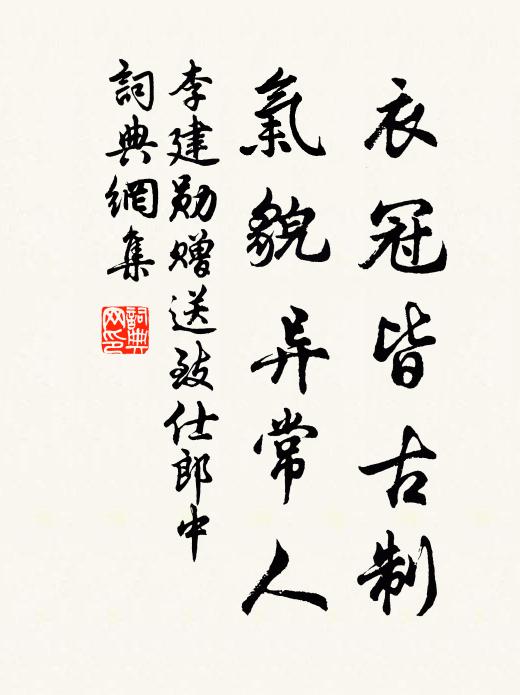 衣冠皆古制
氣貌异常人
李建勛贈送致仕郎中
詞典網集
詞典网印